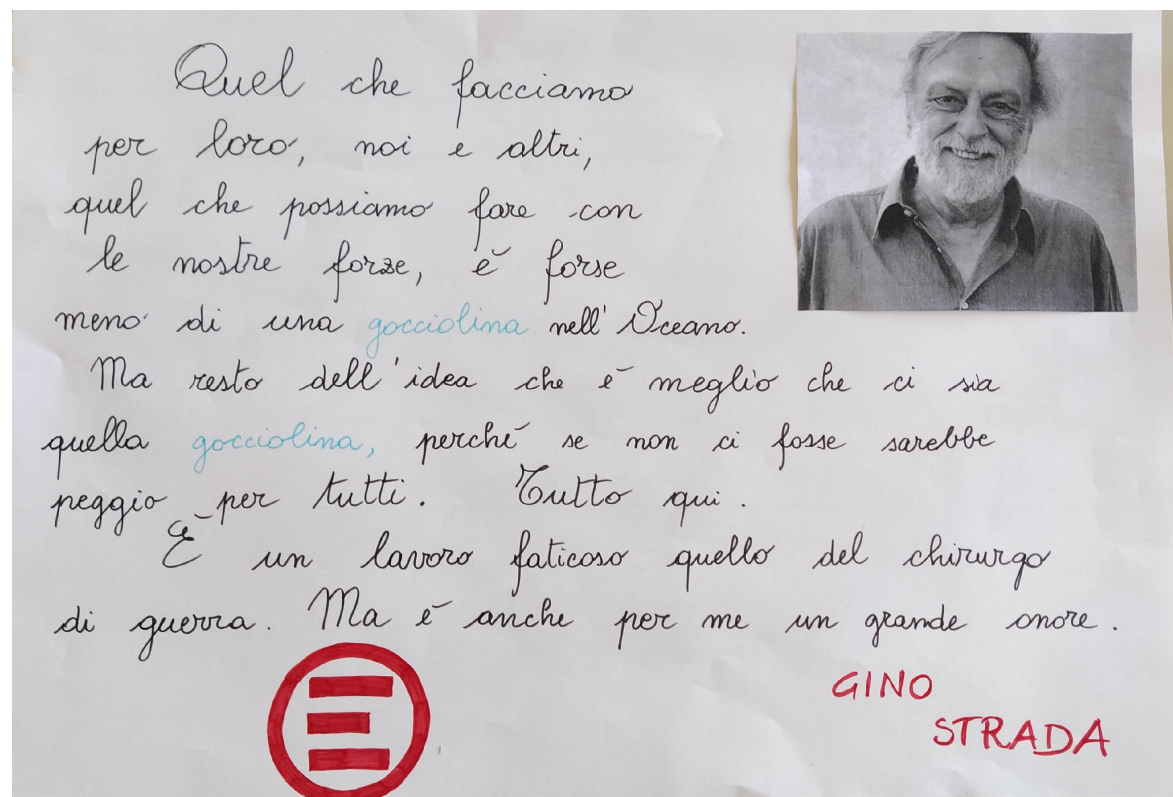 Quel che facciamo
per loro, noi e altri,
quel che possiamo fare con
le nostre forze, è forse
meno di una gocciolina nell'Oceano.
Ma resto dell'idea che è meglio che ci sia
quella gocciolina, perché se non ci fosse sarebbe
peggio per tutti. Tutto qui.
È un lavoro faticoso quello del chirurgo
di guerra. Ma è anche per me un grande onore.
GINO
STRADA